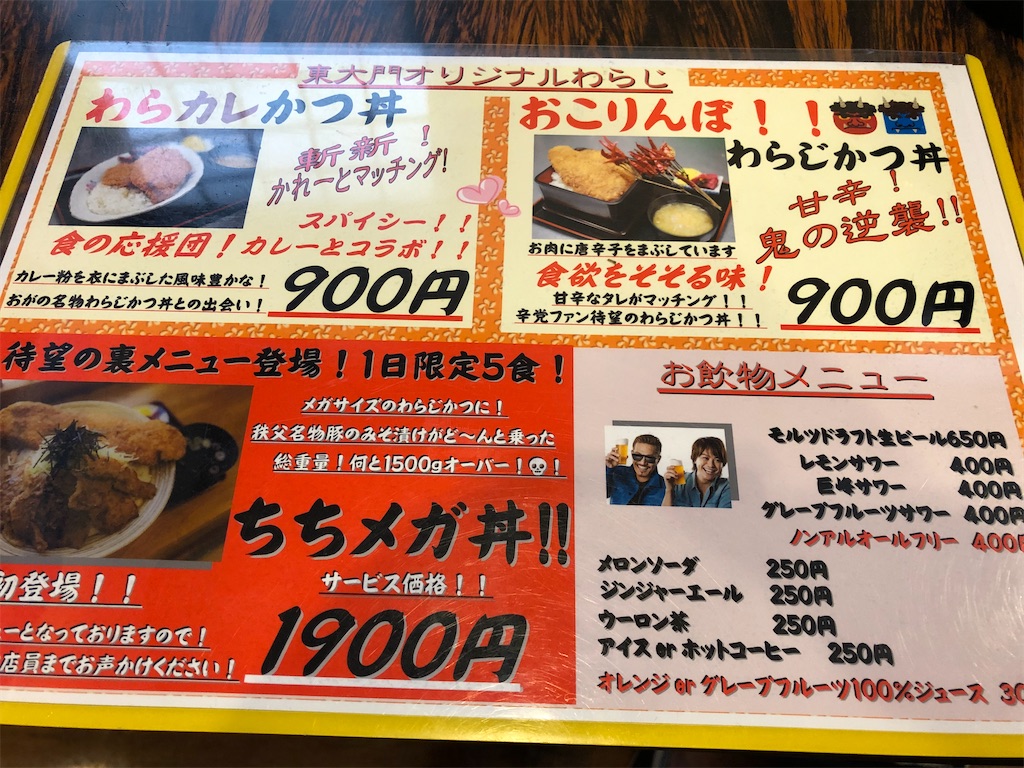 東大門オリジナルわらじ
わらカレかつ丼
斬新！
かれーとマッチング!
スパイシー！！
食の応援団！カレーとコラボ！！
カレー粉を衣にまぶした風味豊かな！
おがの名物わらじかつ丼との出会い！
900円
おこりんぼ！！
わらじかつ丼
甘辛！
鬼の逆襲!!
お肉に唐辛子をまぶしています
食欲をそそる味！
甘辛なタレがマッチング！！
辛党ファン待望のわらじかつ丼！！
900円
待望の裏メニュー登場！1日限定5食！
メガサイズのわらじかつに！
秩父名物豚のみそ漬けがど～んと乗った
総重量！何と1500gオーバー！💀！
ちちメガ丼!!
初登場！！
サービス価格！！
ーとなっておりますので！
店員までお声かけください！
1900円
お飲物メニュー
モルツドラフト生ビール650円
レモンサワー 400円
巨峰サワー 400円
グレープフルーツサワー 400円
ノンアルオールフリー 400円
メロンソーダ 250円
ジンジャーエール 250円
ウーロン茶 250円
アイス or ホットコーヒー 250円
オレンジ or グレープフルーツ100%ジュース 30